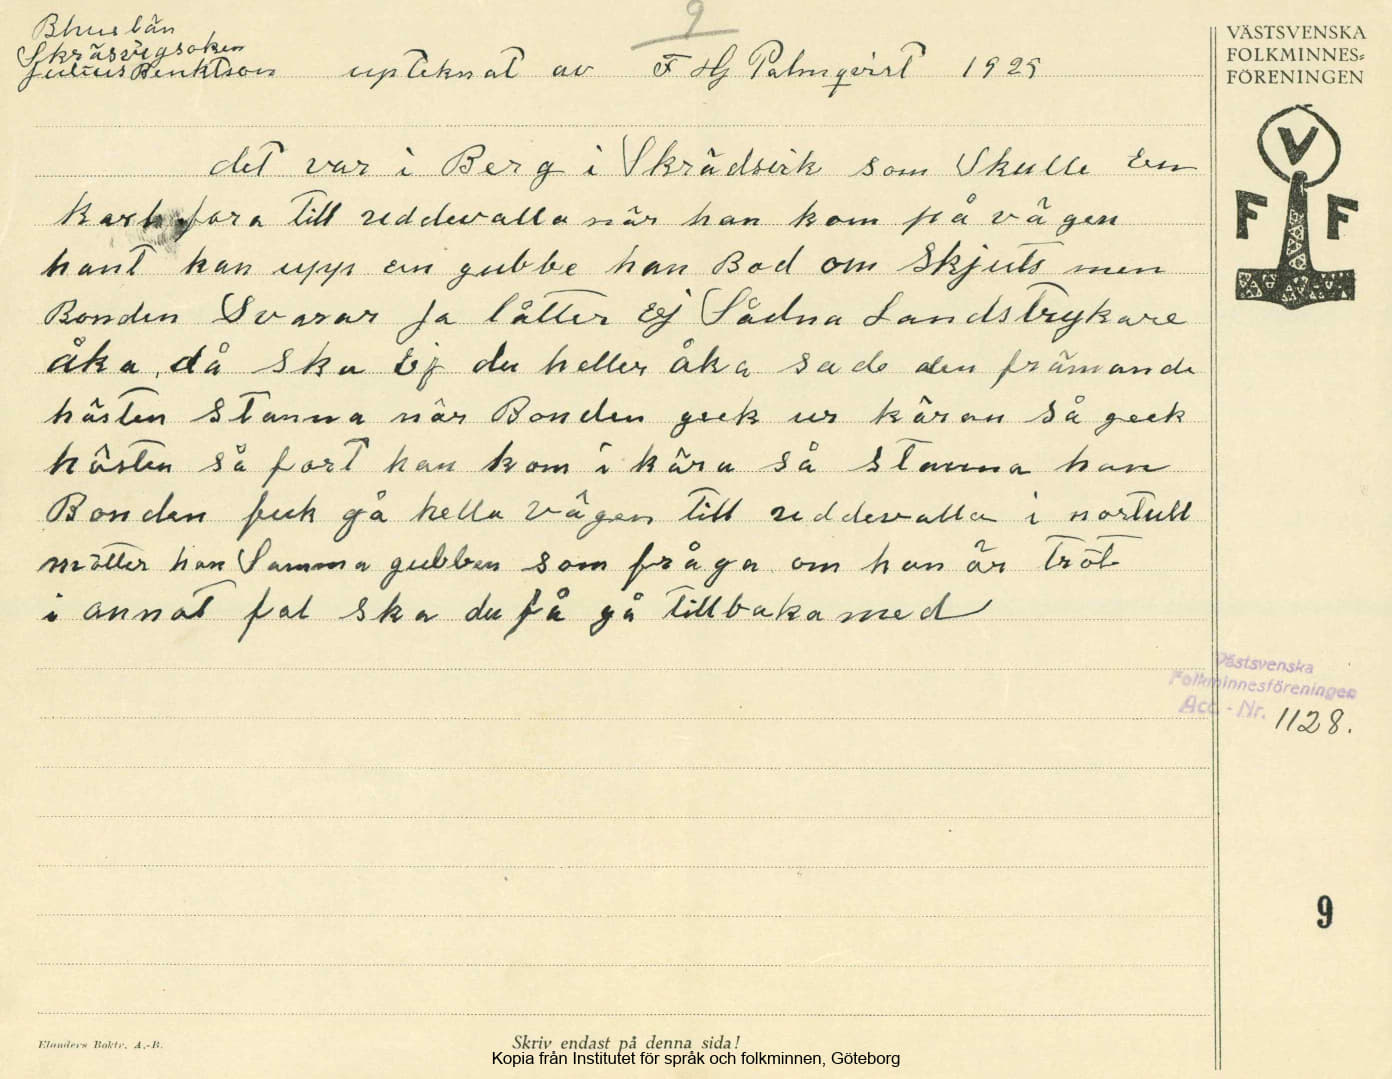 9
Bhuslän
Skräsvigsoken
Julius Benktson upteknat av F Hj Palmqvist 1929
VÄSTSVENSKA
FOLKMINNES=
FÖRENINGEN
V
F F
det var i Berg i Skrädsvik som Skulle En
karl fara till uddevalla när han kom på vägen
hant han upp en gubbe han Bad om Skjuts men
Bonden Svarar Ja låtter Ej Sådna Landstrykare
åka, då ska Ej du heller åka sade den främande
hästen stanna när Bonden geck ur käran så geck
hästen så fort han kom i kära så stanna han
Bonden feck gå hella vägen till uddevalla i nortull
mötter han Samma gubben som fråga om han är tröt
i annat fal ska du få gå tillbaka med
Västsvenska
Folkminnesföreningen
Acc. - Nr. 1128.
9
Elanders Boktr. A.-B.
Skriv endast på denna sida!
Kopia från Institutet för språk och folkminnen, Göteborg